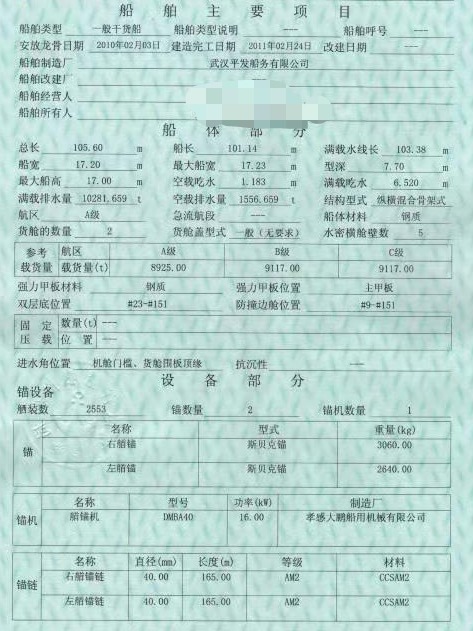 船舶主要项目
船舶类型 一般干货船 船舶类型说明 ---- 船舶呼号 ----
安放龙骨日期 2010年02月03日 建造完工日期 2011年02月24日 改建日期 ----
船舶制造厂 武汉平发船务有限公司
船舶改建厂
船舶经营人
船舶所有人
船体部分
总长 105.60 m 船长 101.14 m 满载水线长 103.38 m
船宽 17.20 m 最大船宽 17.23 m 型深 7.70 m
最大船高 17.00 m 空载吃水 1.183 m 满载吃水 6.520 m
满载排水量 10281.659 t 空载排水量 1556.659 t 结构型式 纵横混合骨架式
航区 A级 急流航段 ---- 船体材料 钢质
货舱的数量 2 货舱盖型式 一般（无要求） 水密横舱壁数 5
参考载货量 航区 A级 B级 C级
载货量(t) 8925.00 9117.00 9117.00
强力甲板材料 钢质 强力甲板位置 主甲板
双层底位置 #23-#151 防撞边舱位置 #9-#151
固定压载 数量(t) ---
位置 ---
进水角位置 机舱门槛、货舱围板顶缘 抗沉性 ----
设备部分
锚设备
舾装数 2553 锚数量 2 锚机数量 1
锚 名称 型式 重量(kg)
右艏锚 斯贝克锚 3060.00
左艏锚 斯贝克锚 2640.00
锚机 名称 型号 功率(kW) 制造厂
艏锚机 DMBA40 16.00 孝感大鹏船用机械有限公司
锚链 名称 直径(mm) 长度(m) 等级 材料
右艏锚链 40.00 165.00 AM2 CCSAM2
左艏锚链 40.00 165.00 AM2 CCSAM2